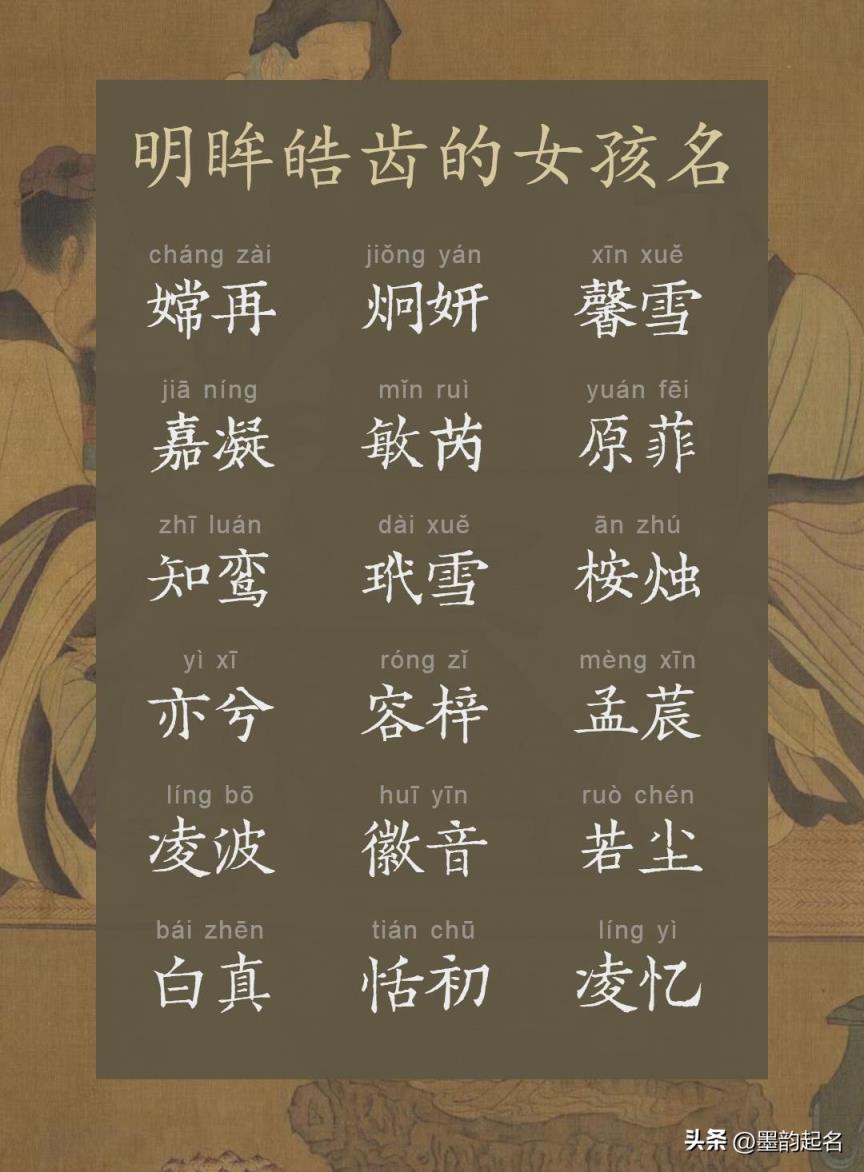 明眸皓齿的女孩名
cháng zài jiǒng yán xīn xuě
嫦再 炯妍 馨雪
jiā níng mǐn ruì yuán fēi
嘉凝 敏芮 原菲
zhī luán dài xuě ān zhú
知鸾 玳雪 桉烛
yì xī róng zǐ mèng xīn
亦兮 容梓 孟莀
líng bō huī yīn ruò chén
凌波 徽音 若尘
bái zhēn tián chū líng yì
白真 恬初 凌忆
头条 @墨韵起名